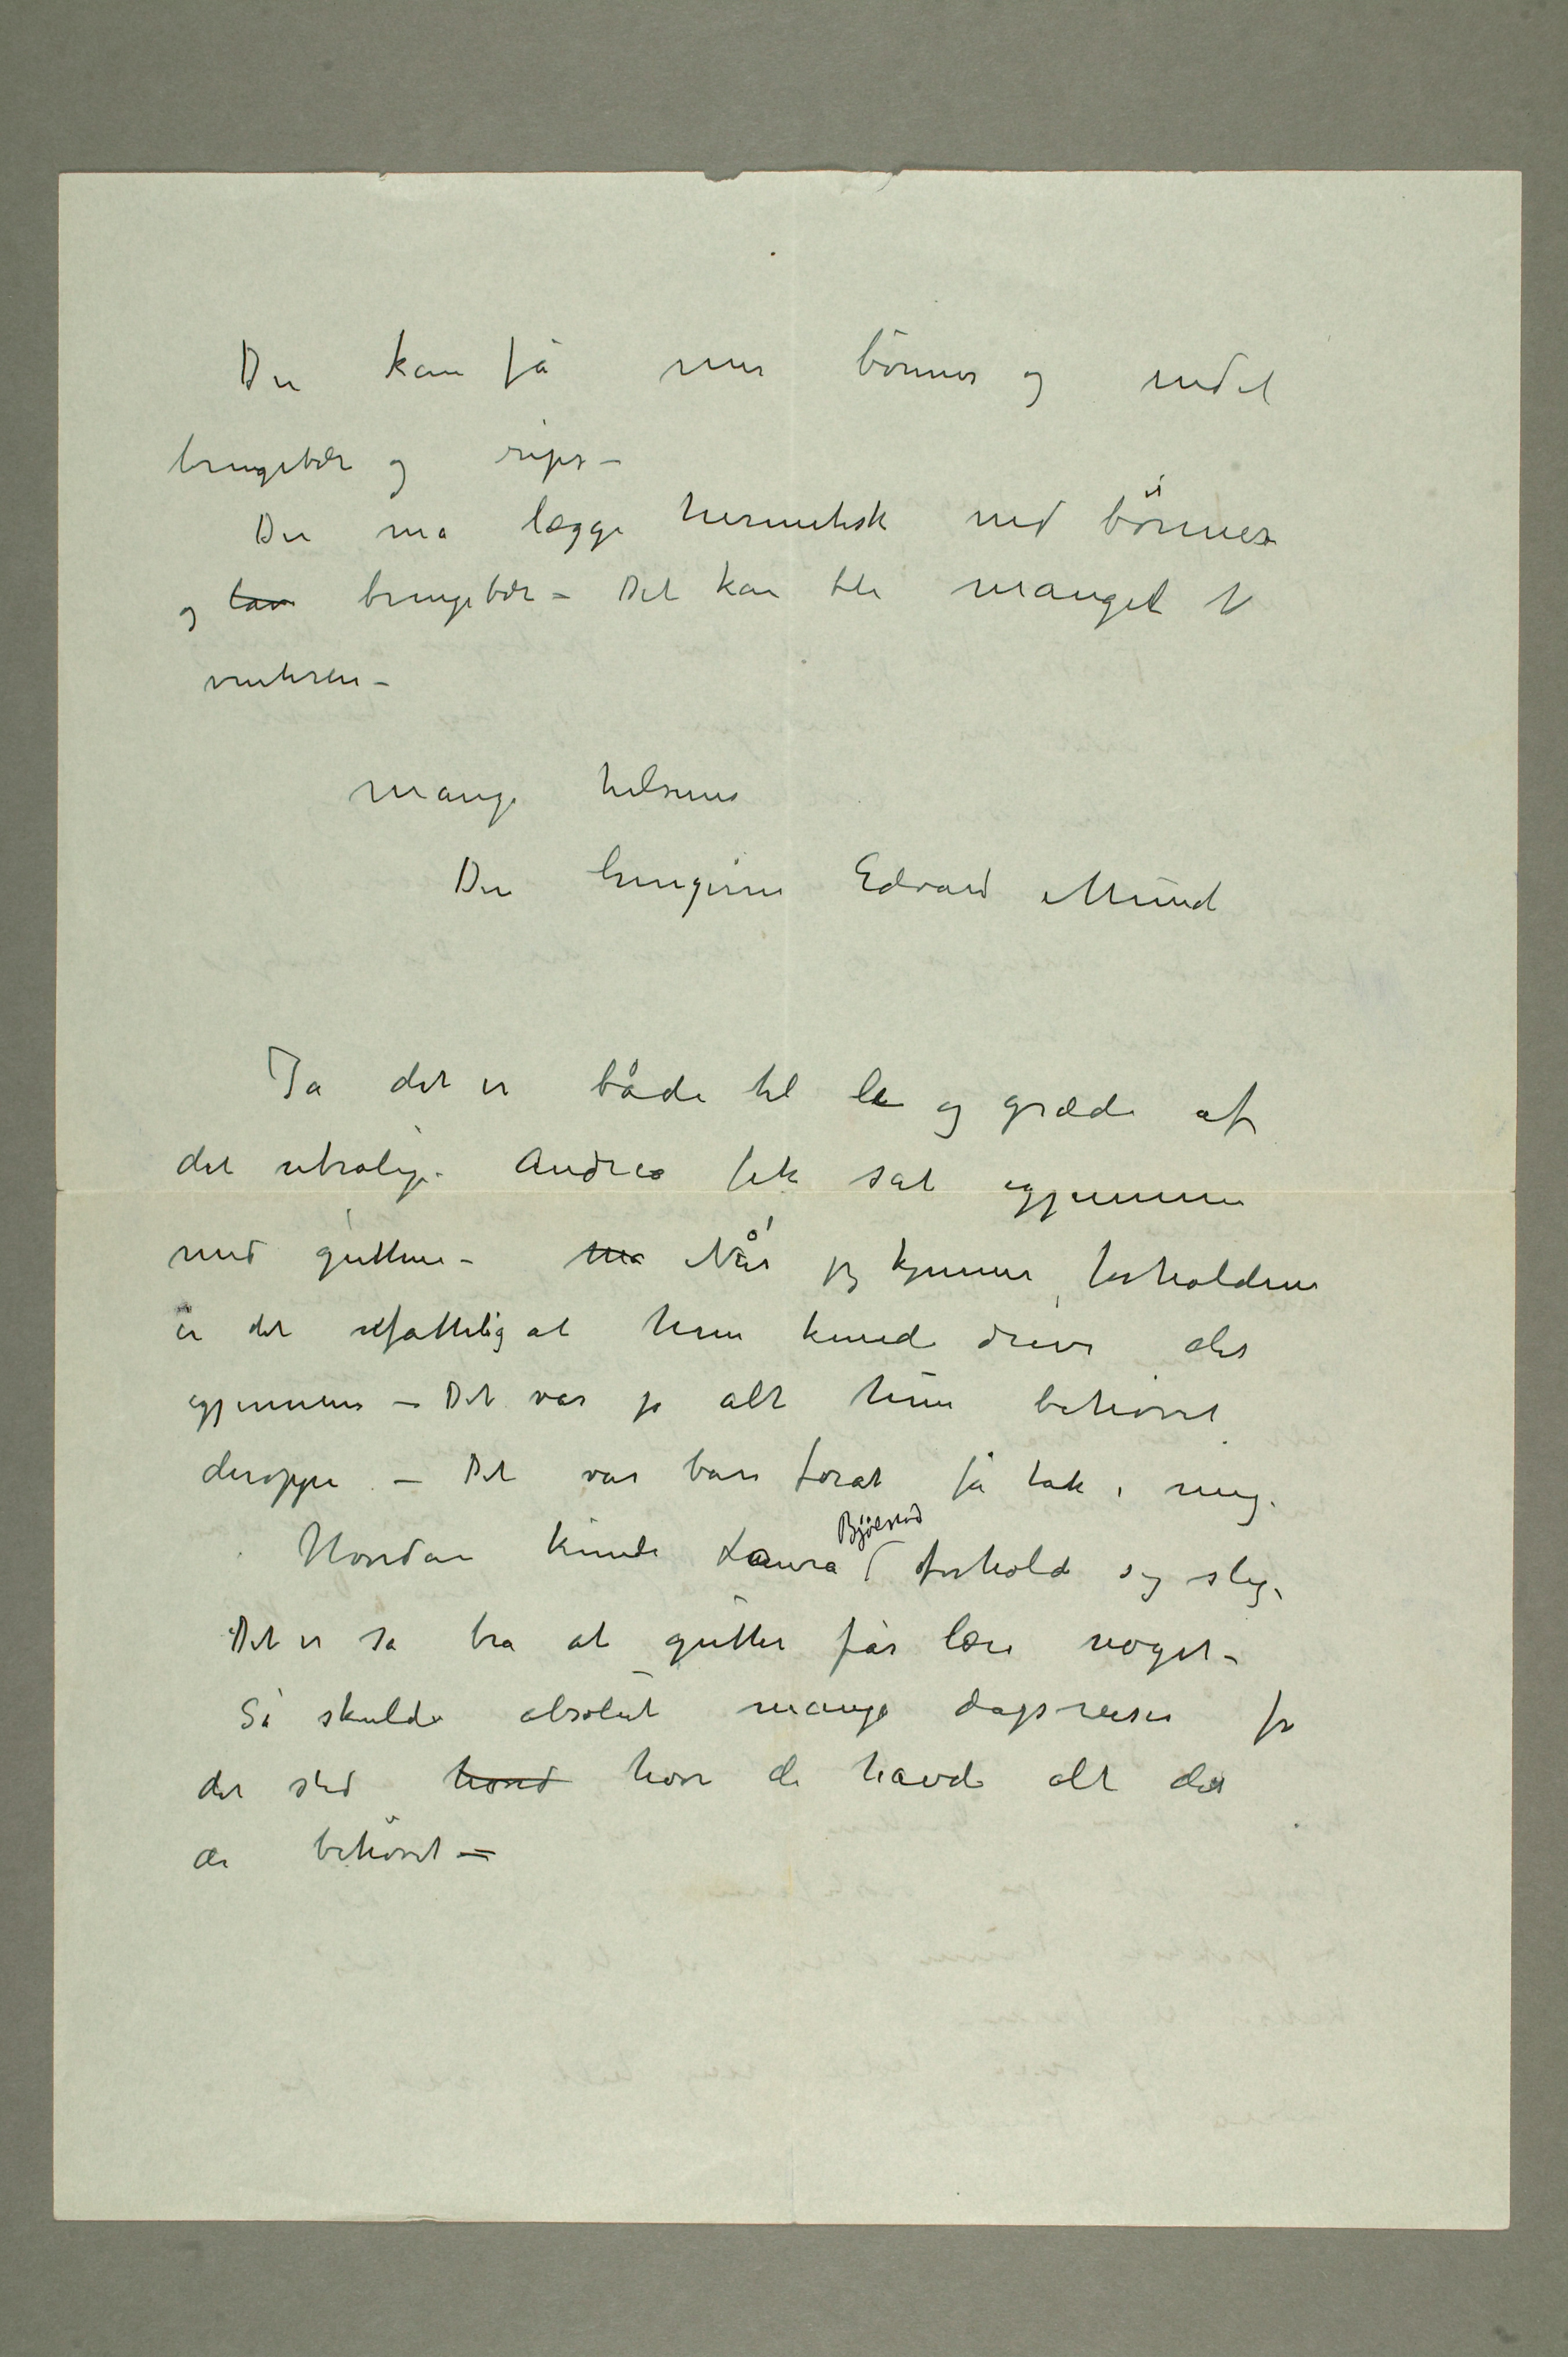 Du kan få mer bönner og endel
bringebær og rips –
Du må lægge hermetisk ned bönner
og bringebær – Det kan bli mangel til
vinteren –
Mange hilsener
Din hengivne Edvard Munch
Ja det er både til le og græde af
det utrolige Andrea fik sat igjennem
med guttene – Når jeg kjenner forholdene
er det ufattelig at hun kunde drive det
igjennem – Det var jo alt hun behövet
deroppe – Det var bare forat få tak i mig.
Hvordan kunde Laura Bjölstad forholde sig slig.
Det er så bra at gutter får lære noget –
Så skulde absolut mange dagsreiser fra
det sted hvor de havde alt det
de behövet –